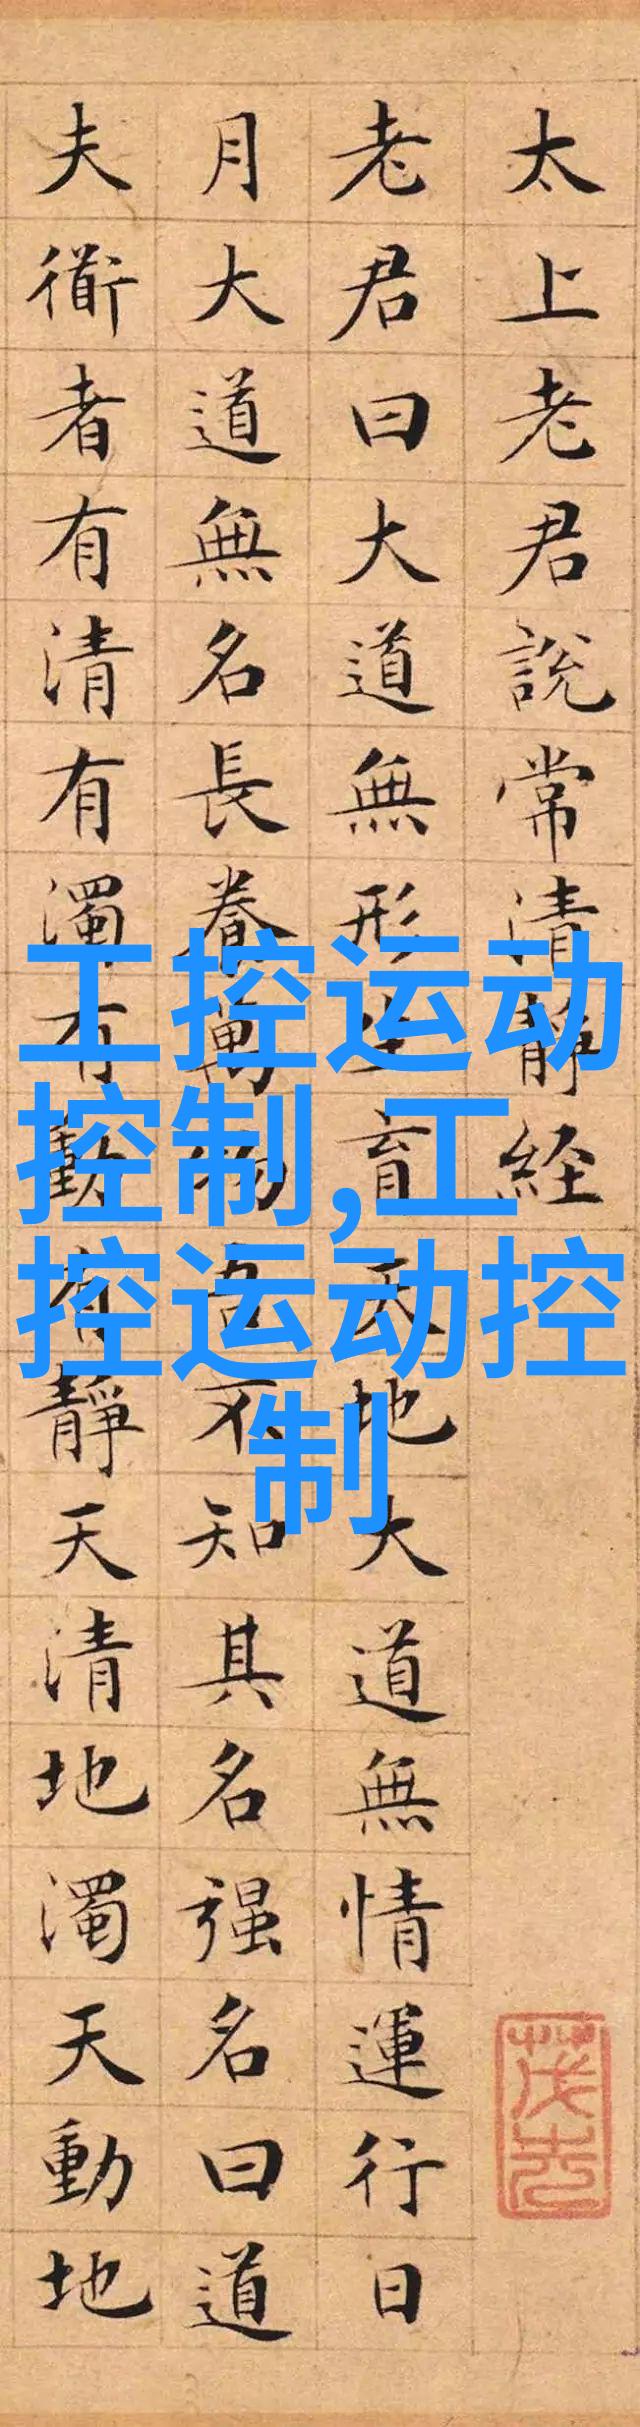 太上老君說常清靜経
老君曰大道無形生育天地大道無情運行日
月大道無名長養萬物吾不知其名强名曰道
夫衜者有清有濁有動有靜天清地濁天動地
工控运动
控制,工
控运动控
制